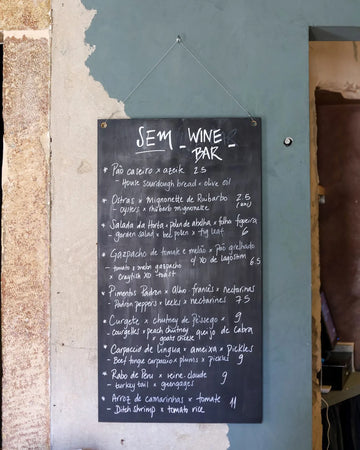 SEM - WINE BAR -
* Pão caseiro x azeite 2.5
- House sourdough bread x olive oil
* Ostras x mignonette de Ruibarbo 2.5
- oysters x rhubarb mignonette (uni)
* Salada da Horta x pólen de abelha x folha figueira
- garden salad x bee pollen x fig leaf 6
* Gaspacho de tomate e melão x pão grelhado
c/ XO de lagostim
- tomato x melon gaspacho 6.5
x crayfish XO - toast
* Pimentos Padron x alho francês x nectarinas
- Padron peppers x leeks x nectarines 7.5
* Curgete x chutney de Pêssego x 9
queijo de Cabra
- courgettes x peach chutney
x goats cheese
* Carpaccio de língua x ameixa x pickles
- Beef tongue carpaccio x plums x pickles 9
* Rabo de Peru x reine-claude 9
- turkey tail x greengages
* Arroz de camarinhas x tomate 11
- Ditch shrimp x tomato rice